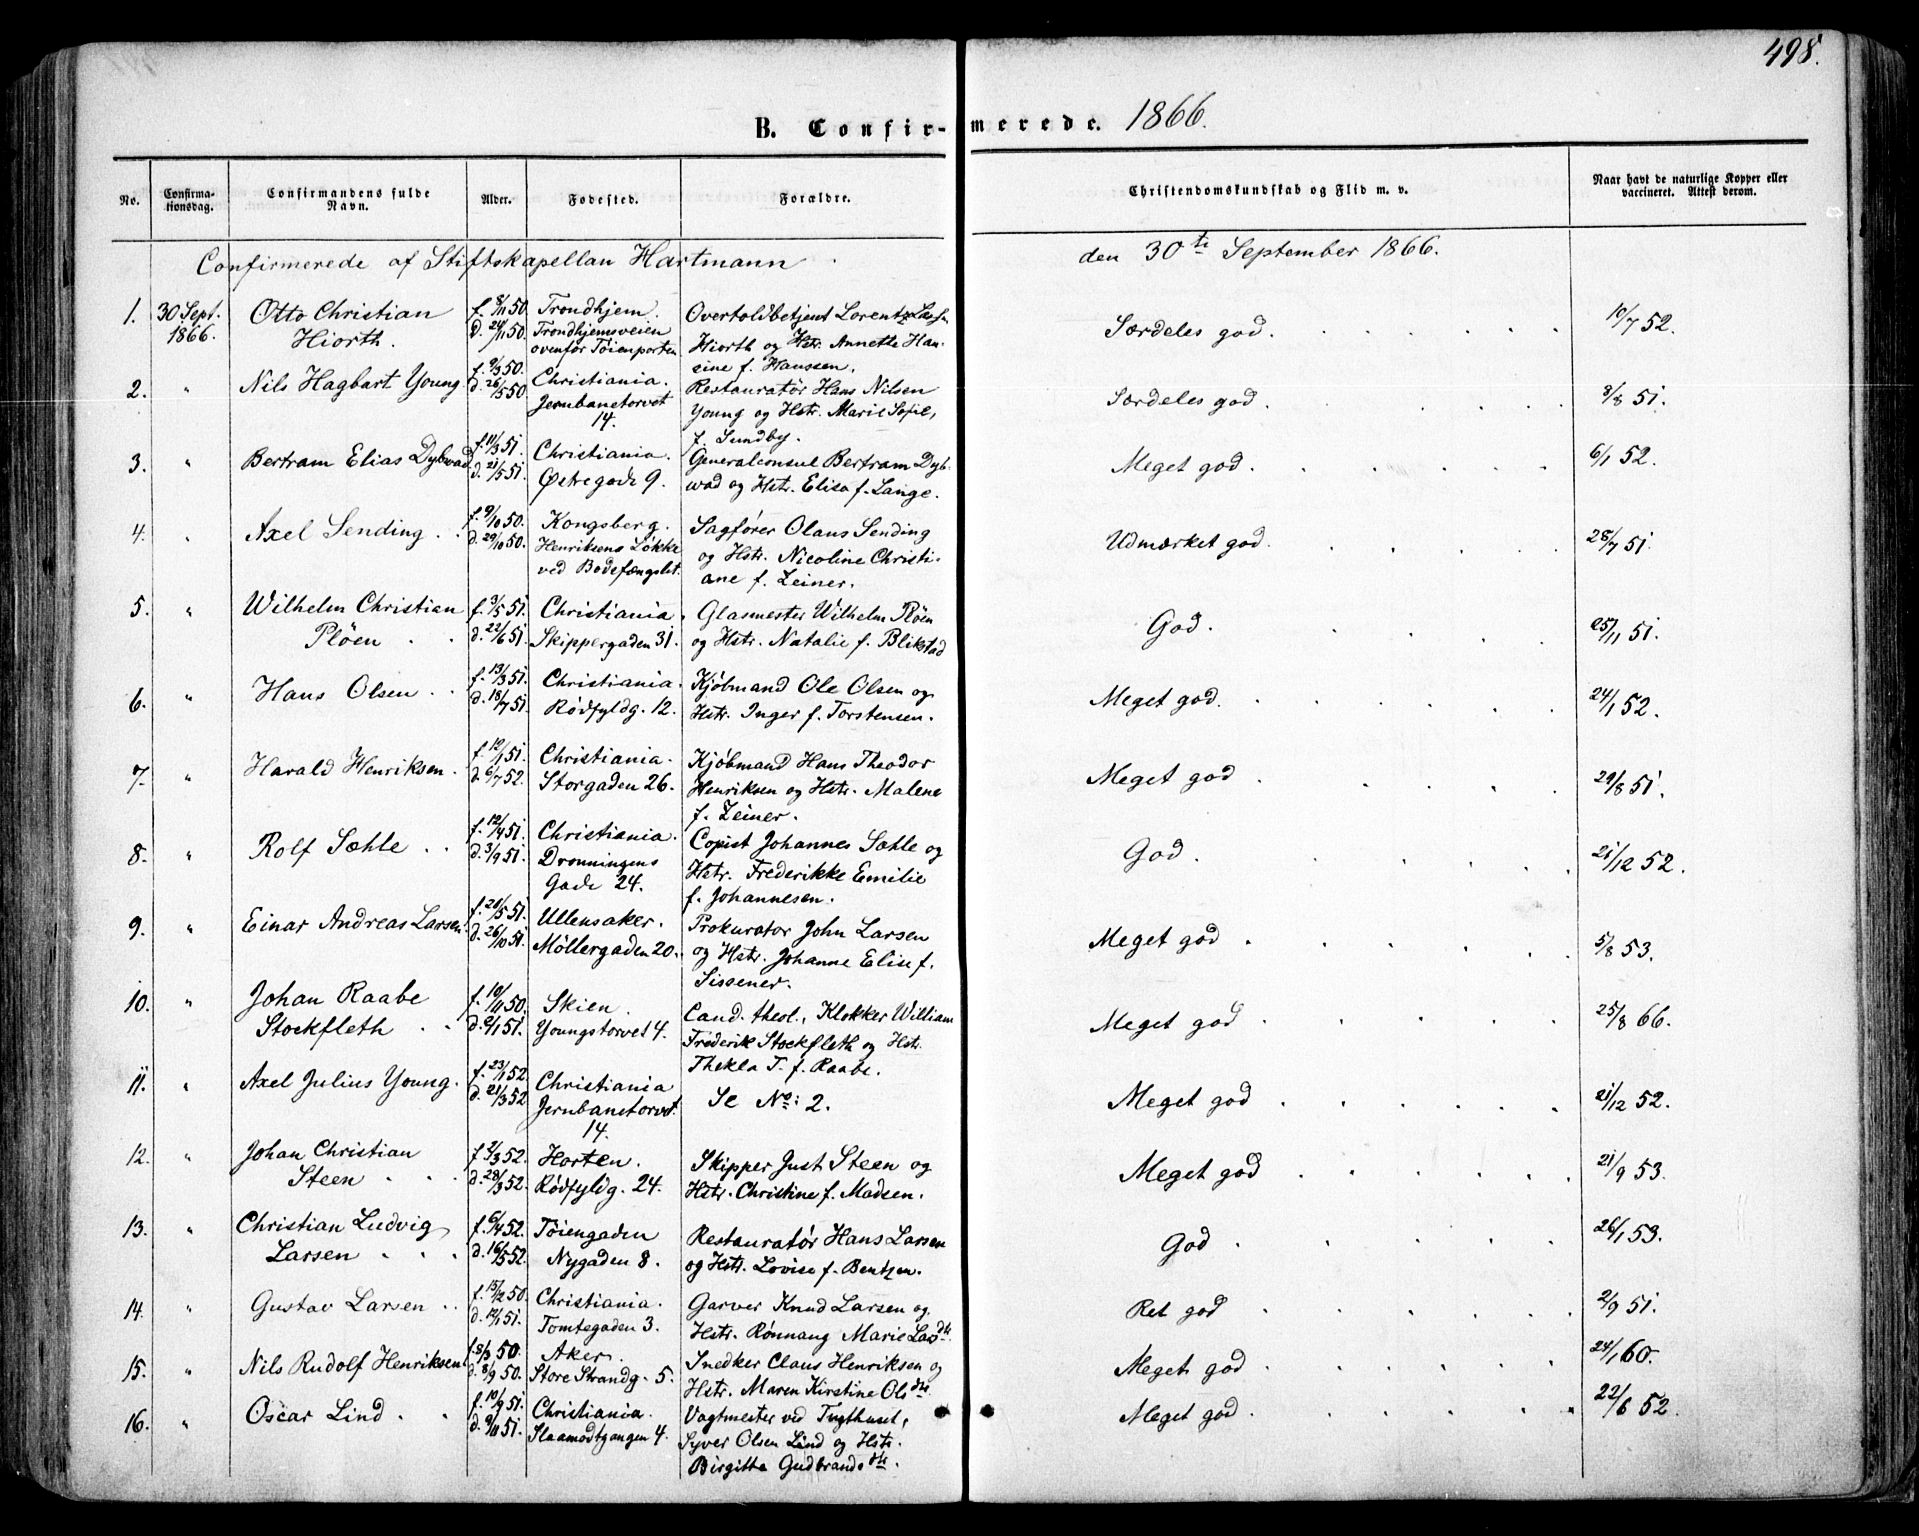 498.
B. Confirmerede. 1866.
No. Confirmationsdag. Confirmandens fulde Navn. Alder. Fødested. Forældre. Christendomskundskab og Flid m. v. Naar havt de naturlige Kopper eller vaccineret. Attest derom.
Confirmerede af Stiftskapellan Hartmann den 30te September 1866.
1. 30 Sept. 1866. Otto Christian Hiorth. f. 8/11 50. d. 24/11 50. Trondhjem. Trondhjemsveien ovenfor Töienporten Overtoldbetjent Lorentz Hiorth og Hstr. Annette Hansine f. Hanssen. Særdeles god. 10/7 52.
2. " Nils Hagbart Young. f. 9/3 50. d. 26/5 50 Christiania. Jernbanetorvet 14. Restauratør Hans Nilsen Young og Hstr. Marie Sofie, f. Sundby. Særdeles god. 8/8 51.
3. " Bertram Elias Dybwad f. 11/3 51. d. 21/5 51. Christiania. Østregade 9. Generalconsul Bertram Dybwad og Hstr. Elise f. Lange. Meget god. 6/1 52.
4. " Axel Sending. f. 9/10 50. d. 29/10 50. Kongsberg. Henriksens Løkke ved Bodsfængslet. Sagfører Olaus Sending og Hstr. Nicoline Christiane f. Zeiner. Udmærket god. 28/7 51.
5. " Wilhelm Christian Plöen. f. 3/5 51. d. 22/6 51. Christiania. Skippergaden 31. Glasmester Wilhelm Plöen og Hstr. Natalie f. Blikstad God. 25/11 51.
6. " Hans Olsen. f. 13/3 51. d. 18/7 51. Christiania. Rödfyldg. 12. Kjøbmand Ole Olsen og Hstr. Inger f. Torstensen. Meget god. 24/1 52.
7. " Harald Henriksen. f. 12/1 51. d. 6/7 52. Christiania. Storgaden 26. Kjøbmand Hans Theodor Henriksen og Hstr. Malene f. Zeiner. Meget god. 29/8 51.
8. " Rolf Sæhle. f. 12/4 51. d. 3/9 51. Christiania. Dronningens Gade 24. Copist Johannes Sæhle og Hstr. Frederikke Emilie f. Johannesen. God. 21/12 52.
9. " Einar Andreas Larsen. f. 20/5 51. d. 26/10 51. Ullensaker. Möllergaden 20. Prokurator John Larsen og Hstr. Johanne Elise f. Sissener. Meget god. 5/8 53.
10. " Johan Raabe Stockfleth. f. 10/11 50. d. 9/1 51. Skien. Youngstorvet 4. Cand. theol., Klokker William Frederik Stockfleth og Hstr. Thekla T. f. Raabe. Meget god. 25/8 66.
11. " Axel Julius Young. f. 23/1 52. d. 21/3 52 Christiania Jernbanetorvet 14. Se No: 2. Meget god. 21/12 52.
12. " Johan Christian Steen. f. 2/3 52. d. 28/3 52. Horten. Rödfyldg. 24. Skipper Just Steen og Hstr. Christine f. Madsen. Meget god. 21/9 53.
13. " Christian Ludvig Larsen. f. 6/4 52. d. 16/5 52. Töiengaden Nygaden 8. Restauratør Hans Larsen og Hstr. Lovise f. Bentzen. God. 26/1 53.
14. " Gustav Larsen. f. 15/12 50. d. 12/1 51. Christiania. Tomtegaden 3. Garver Knud Larsen og Hstr. Rönnaug Marie Larsdtr. Ret god 2/9 51.
15. " Nils Rudolf Henriksen f. 8/3 50. d. 8/9 50. Aker. Store Strandg. 5. Snedker Claus Henriksen og Hstr. Maren Kirstine Olsdtr. Meget god. 24/1 60.
16. " Oscar Lind. f. 10/9 51. d. 9/11 51. Christiania. Slaamodtgangen 4. Vagtmester ved Tugthuset, Syver Olsen Lind og Hstr. Birgitte Gudbrandsdtr. Meget god. 22/6 52.